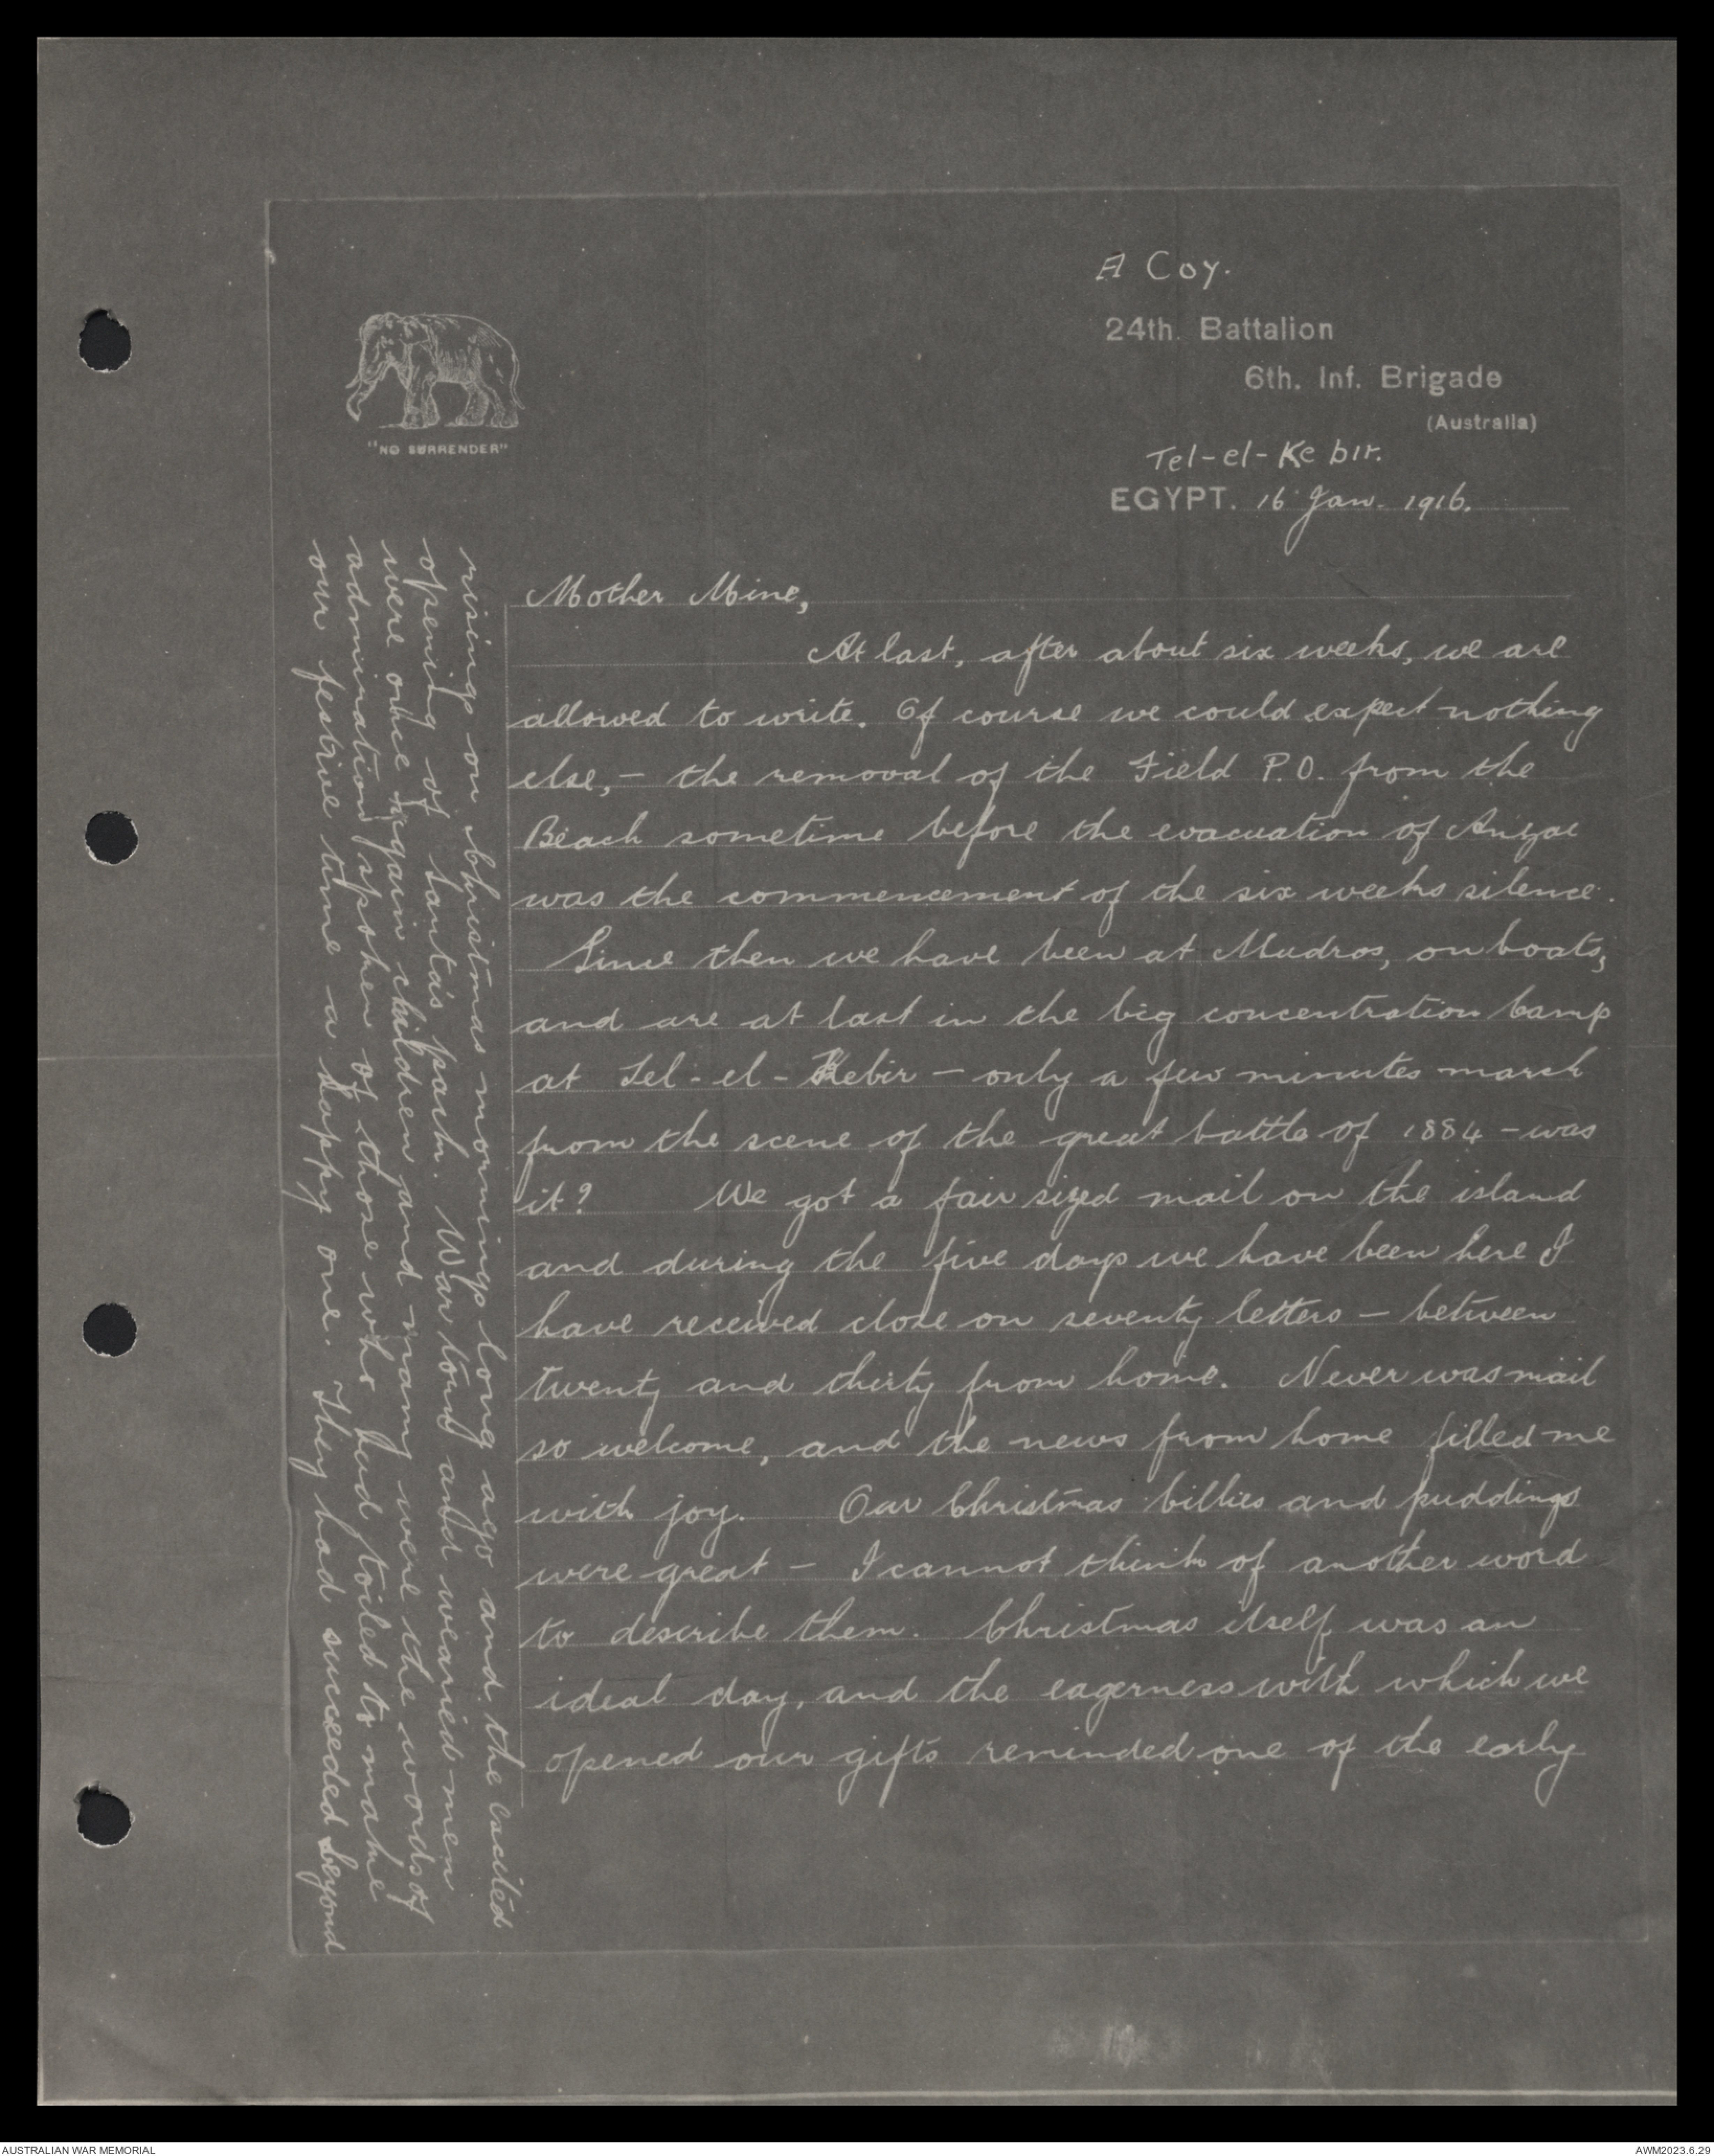 A Coy.
24th. Battalion
6th. Inf. Brigade
(Australia)
"NO SURRENDER"
Tel-el-Kebir.
EGYPT. 16 Jan. 1916.
Mother Mine,
At last, after about six weeks, we are
allowed to write. Of course we could expect nothing
else, - the removal of the Field P.O. from the
Beach sometime before the evacuation of Anzac
was the commencement of the six weeks silence.
Since then we have been at Mudros, on boats,
and are at last in the big concentration Camp
at Tel-el-Kebir - only a few minutes march
from the scene of the great battle of 1884 - was
it? We got a fair sized mail on the island
and during the five days we have been here I
have received close on seventy letters - between
twenty and thirty from home. Never was mail
so welcome, and the news from home filled me
with joy. Our Christmas billies and puddings
were great - I cannot think of another word
to describe them. Christmas itself was an
ideal day, and the eagerness with which we
opened our gifts reminded one of the early
risings on Christmas mornings long ago and the excited
opening of Santa's pack. War torn and wearied men
were once again children and many were the words of
admiration spoken of those who had toiled to make
our festive time a happy one. They had succeeded beyond
AUSTRALIAN WAR MEMORIAL
AWM2023.6.29